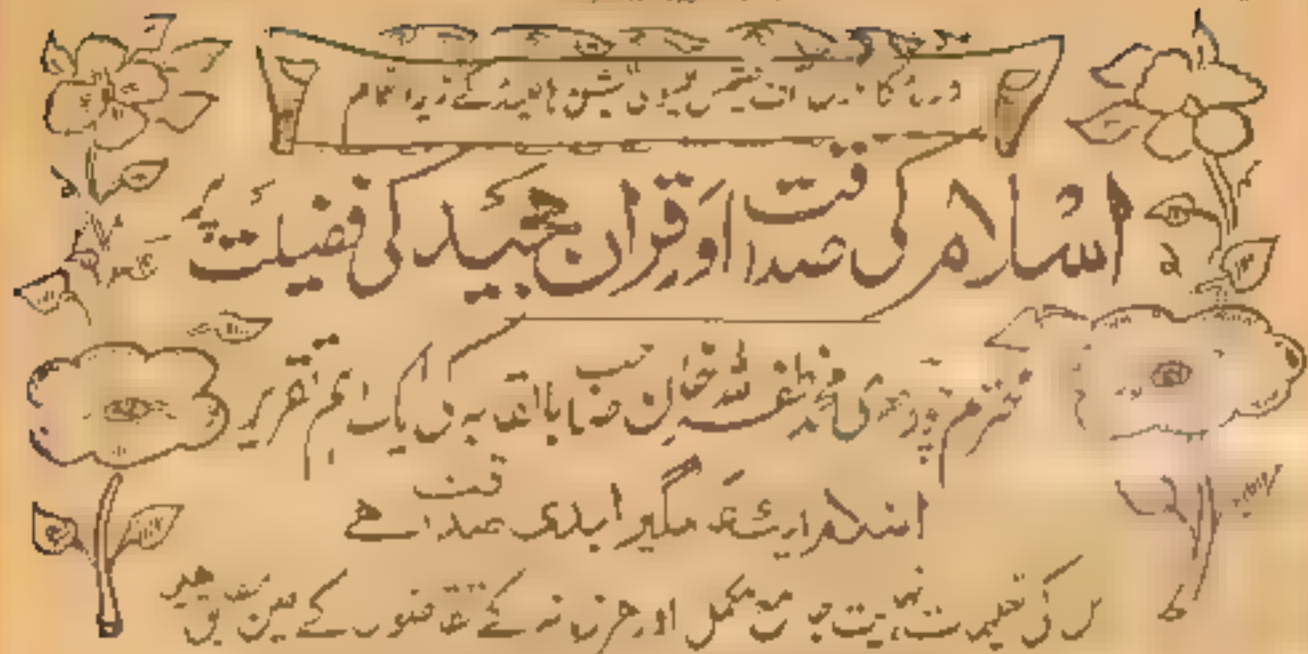 اسلام کی صداقت اور قرآن مجید کی فضیلت پر
محترم چودھری محمد ظفر اللہ خان صاحب بالقابہ کی ایک اہم تقریر
اسلام ایک عالمگیر ابدی صداقت ہے
اس کی تعلیمات نہایت جامع مکمل اور ہر زمانہ کے تقاضوں کے عین مطابق ہیں